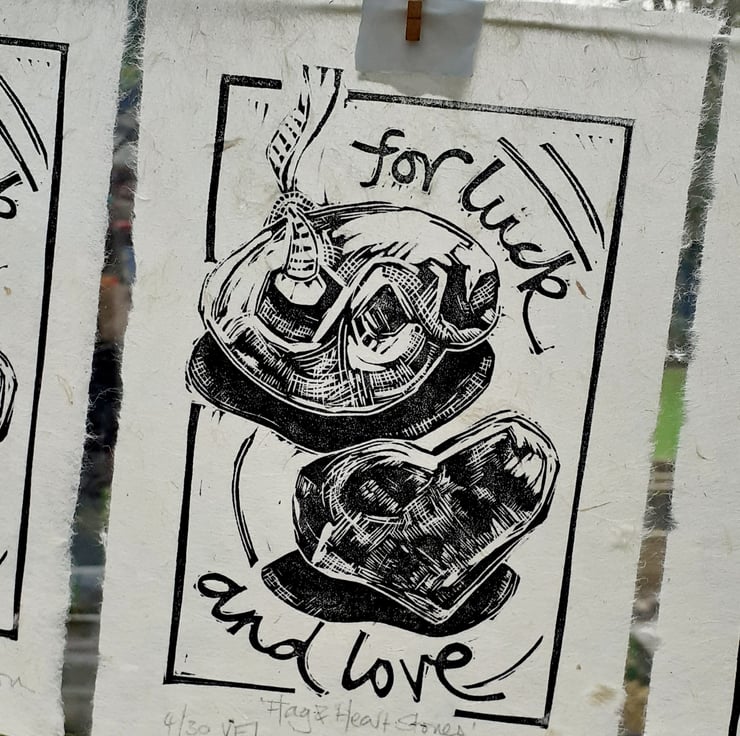 for luck
and love
4/30 VE1 'Hag & Heart Stones'